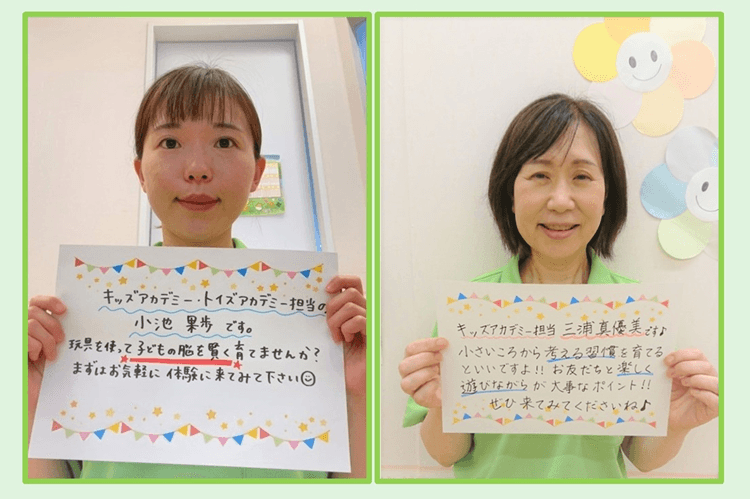 キッズアカデミー・トイズアカデミー担当の
小池 果歩 です。
玩具を使って子どもの脳を賢く育てませんか?
まずはお気軽に体験に来てみて下さい☺
キッズアカデミー担当 三浦真優美です♪
小さいころから考える習慣を育てる
といいですよ!!お友だちと楽しく
遊びながらが大事なポイント!!
ぜひ来てみてくださいね♪